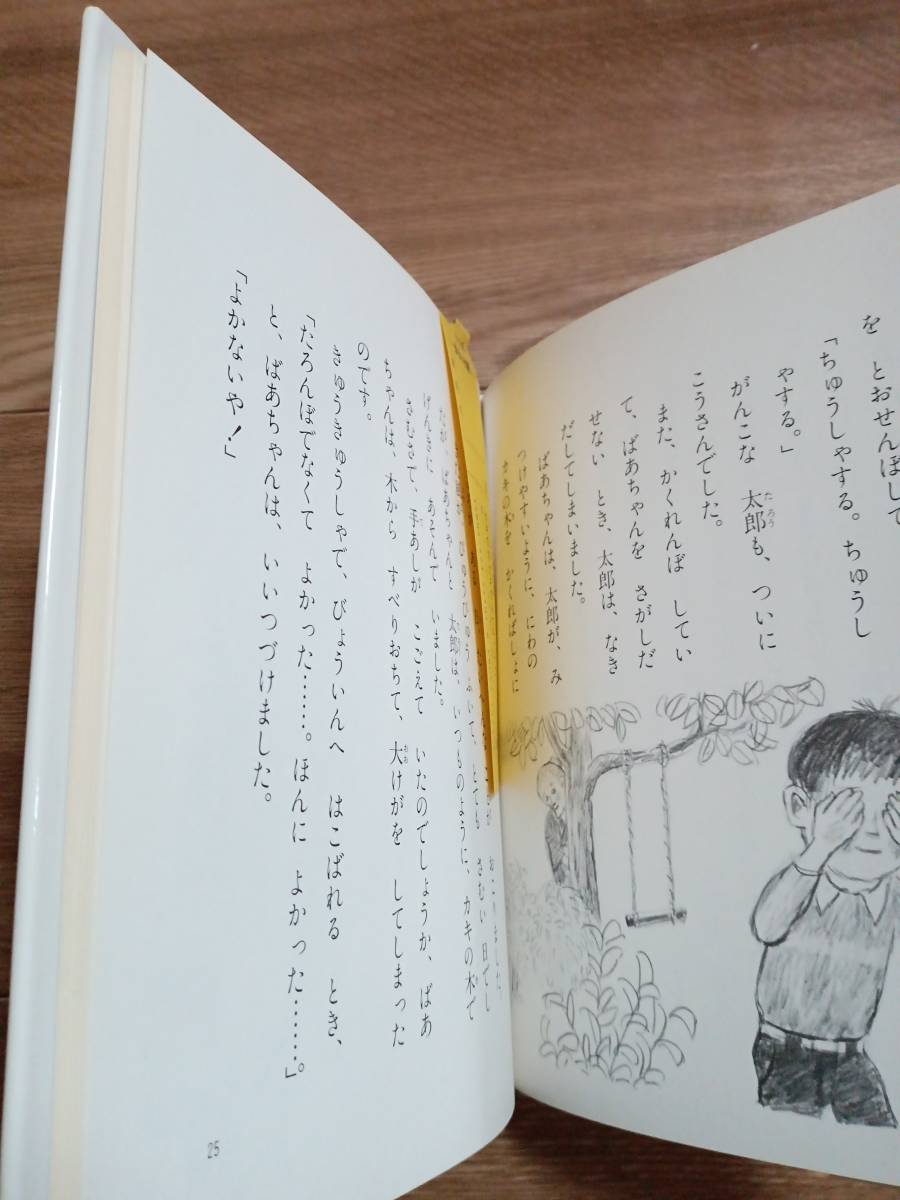 を とおせんぼして
「ちゅうしゃする。ちゅうし
ゃする。」
がんこな 太郎も、ついに
こうさんでした。
また、かくれんぼ してい
て、ばあちゃんを さがしだ
せない とき、太郎は、なき
だしてしまいました。
ばあちゃんは、太郎が、み
つけやすいように、にわの
カキの木を かくればしょに
おこりました。
さむい 日でし
びゅうびゅう ふいて、とても
ばあちゃんと 太郎は、いつものように、カキの木で
げんきに あそんで いました。
さむさで、手あしが こごえて いたのでしょうか、ばあ
ちゃんは、木から すべりおちて、大けがを してしまった
のです。
きゅうきゅうしゃで、びょういんへ はこばれる とき、
「たろんぼでなくて よかった……。ほんに よかった……。」
と、ばあちゃんは、いいつづけました。
「よかないや！」
25